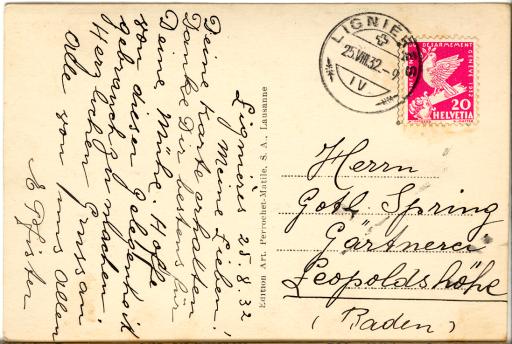 Lignières 25.8.32
Meine Lieben!
Deine Karte erhalten
Danke Dir bestens für
Deine Mühe. Hoffe
von dieser Gelegenheit
gebrauch zu machen
Herzlichen Grusse an
alle von uns allen
E Pfister
Edition Art. Perrochet-Matile, S. A., Lausanne
LIGNIÈRES
25.VIII.32.-9
IV
DESARMEMENT
GENEVE 1932
20
HELVETIA
Herrn
Gotl. Spring
Gärtnerei
Leopoldshöhe
(Baden)